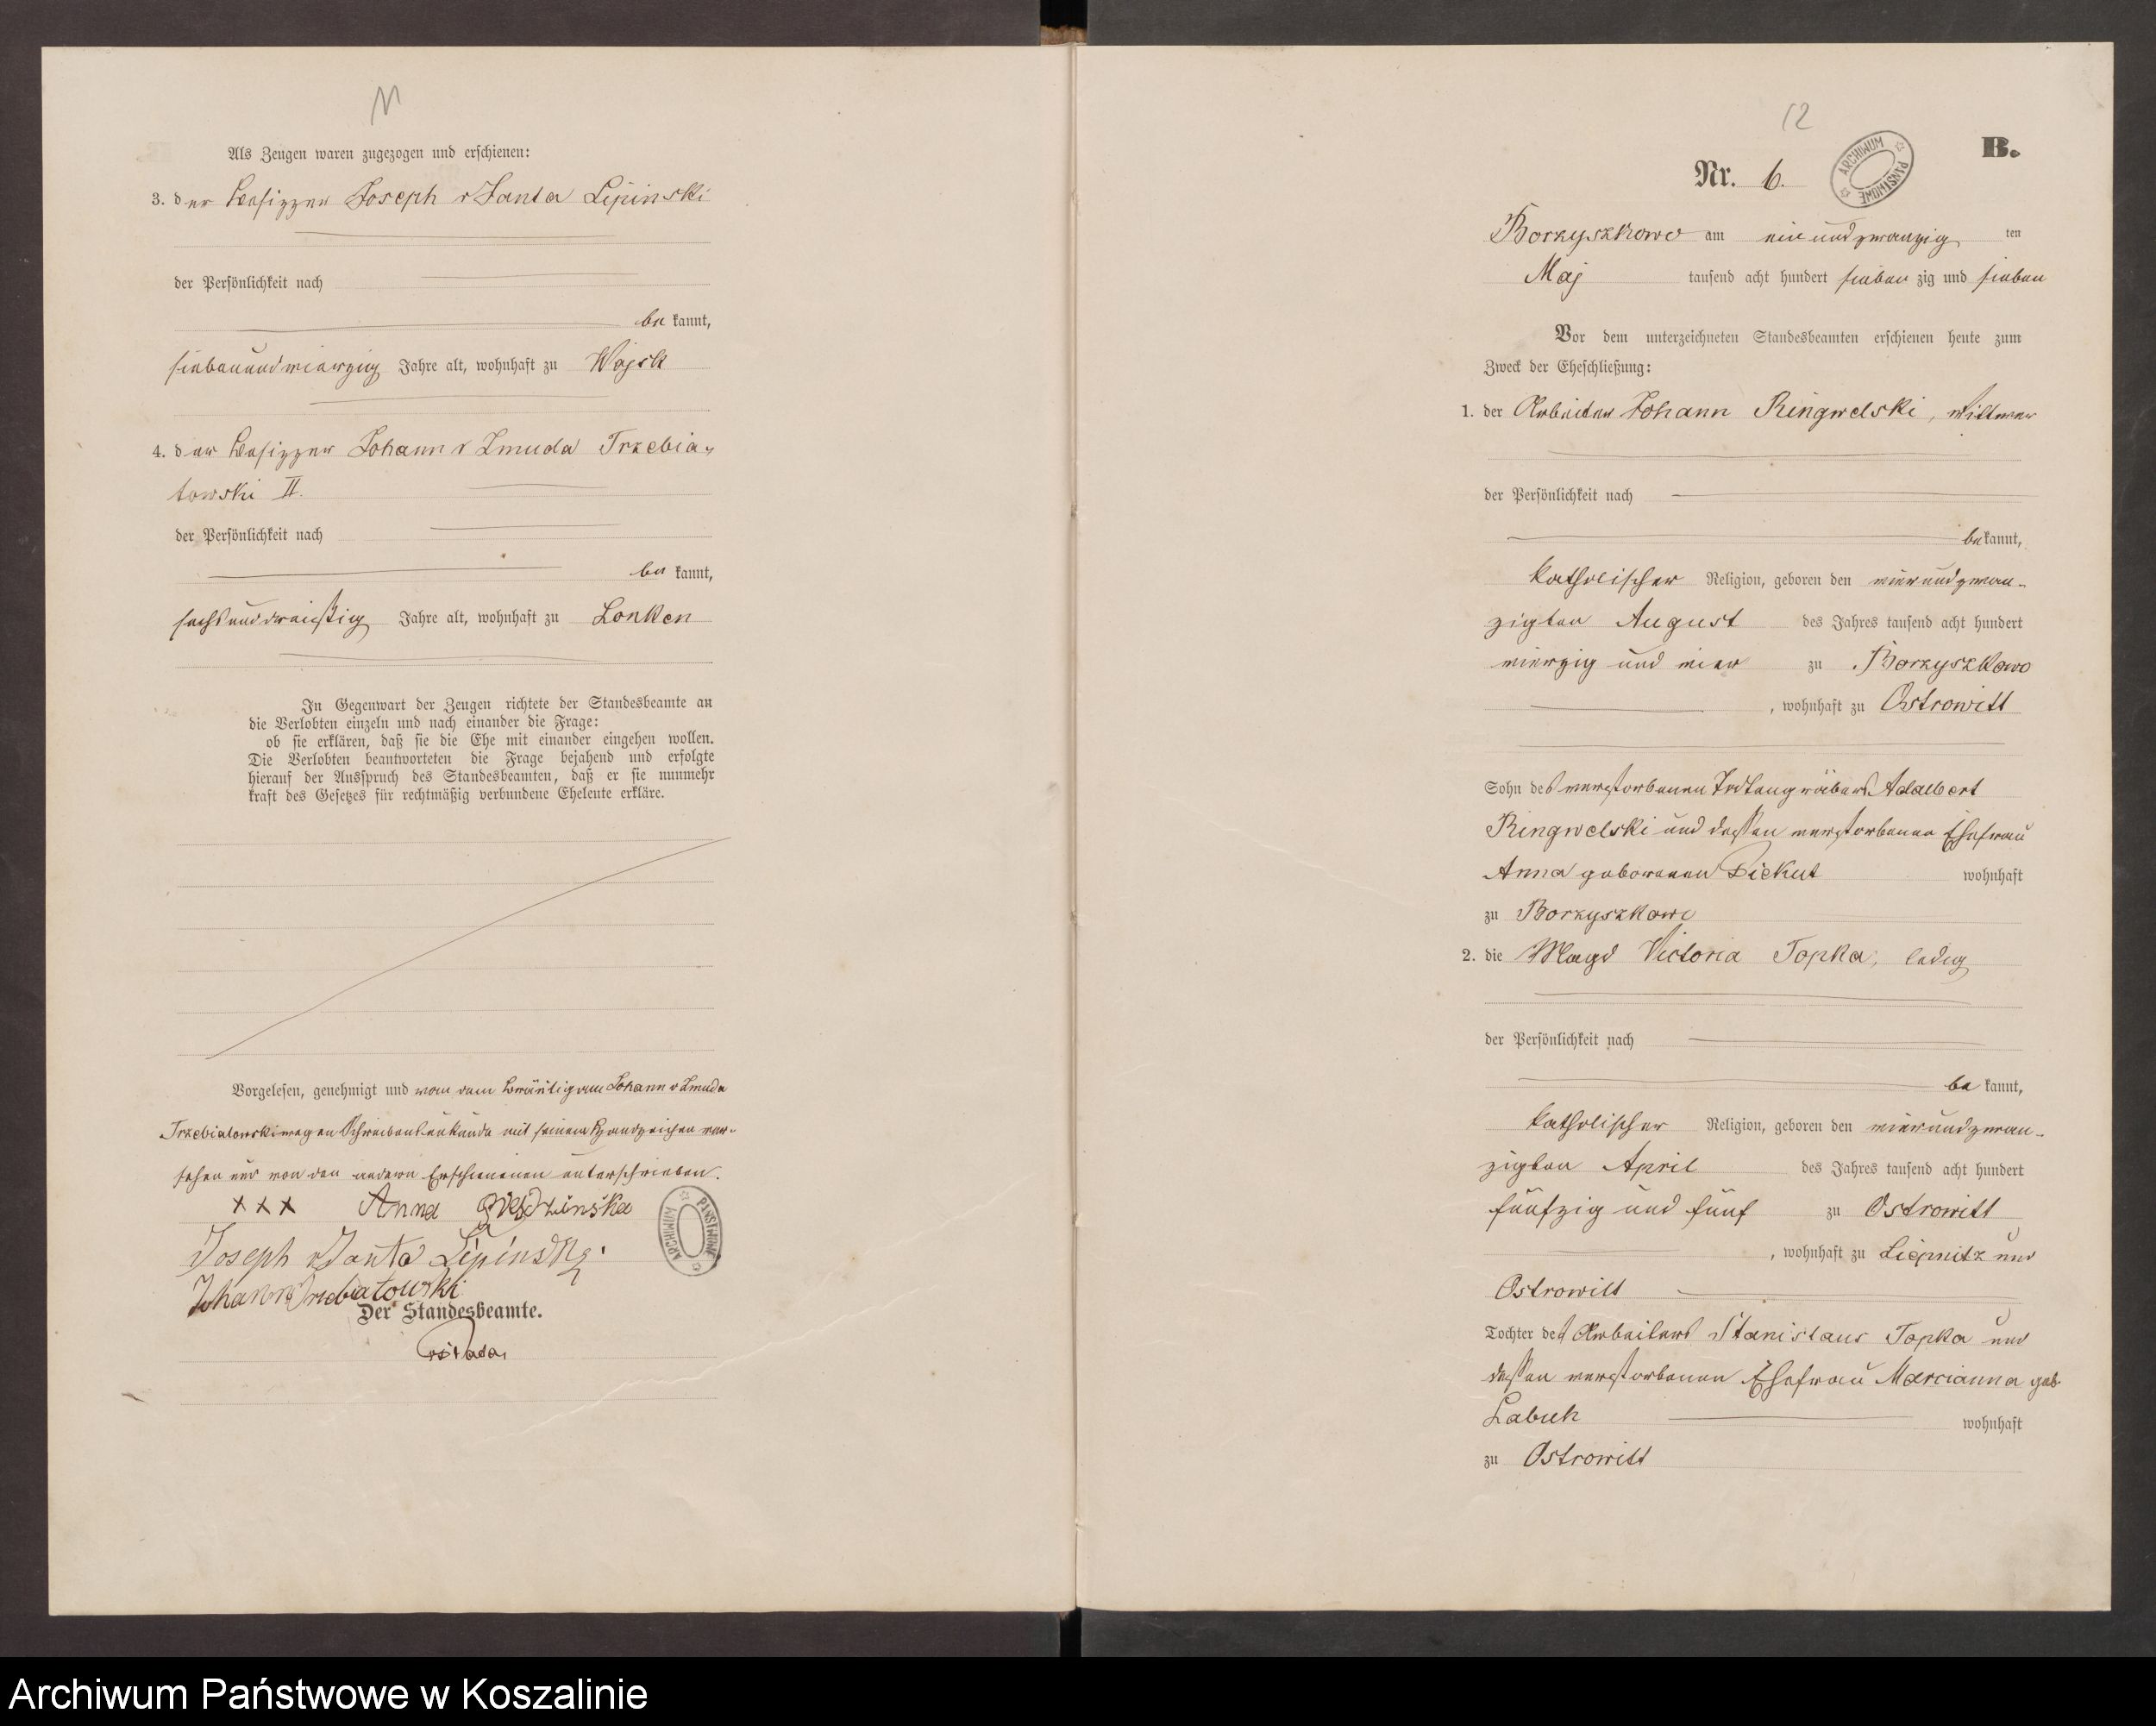 11
Als Zeugen waren zugezogen und erschienen:
3. der Besitzer Joseph v Janta Lipinski
der Persönlichkeit nach
be kannt,
siebenundvierzig Jahre alt, wohnhaft zu Wojsk
4. der Besitzer Johann v Zmuda Trzebia-
towski II.
der Persönlichkeit nach
be kannt,
sechsunddreißig Jahre alt, wohnhaft zu Lonken
In Gegenwart der Zeugen richtete der Standesbeamte an
die Verlobten einzeln und nach einander die Frage:
ob sie erklären, daß sie die Ehe mit einander eingehen wollen.
Die Verlobten beantworteten die Frage bejahend und erfolgte
hierauf der Ausspruch des Standesbeamten, daß er sie nunmehr
kraft des Gesetzes für rechtmäßig verbundene Eheleute erkläre.
Vorgelesen, genehmigt und von dem Bräutigam Johann v Zmuda
Trzebiatowski wegen Schreibensunkunde mit seinem Handzeichen ver-
sehen und von den andern Erschienenen unterschrieben.
xxx Anna
Joseph v Janta Lipinski
Johann Trzebiatowski
Der Standesbeamte.
ARCHIWUM PAŃSTWOWE
12
B.
Nr. 6.
ARCHIWUM PAŃSTWOWE
Borzyszkowo am einundzwanzig ten
Maj tausend acht hundert sieben zig und sieben
Vor dem unterzeichneten Standesbeamten erschienen heute zum
Zweck der Eheschließung:
1. der Arbeiter Johann Ringwelski, Wittwer
der Persönlichkeit nach
be kannt,
katholischer Religion, geboren den vierundzwan-
zigten August des Jahres tausend acht hundert
vierzig und vier zu Borzyszkowo
, wohnhaft zu Ostrowitt
Sohn des verstorbenen Adalbert
Ringwelski und dessen verstorbenen Ehefrau
Anna geborenen Piekut wohnhaft
zu Borzyszkowo
2. die Magd Victoria Topka, ledig
der Persönlichkeit nach
be kannt,
katholischer Religion, geboren den vierundzwan-
zigten April des Jahres tausend acht hundert
fünfzig und fünf zu Ostrowitt
, wohnhaft zu Liepnitz und
Ostrowitt
Tochter des Arbeiters Stanislaus Topka und
dessen verstorbenen Ehefrau Marcianna geb.
Labuch wohnhaft
zu Ostrowitt
Archiwum Państwowe w Koszalinie